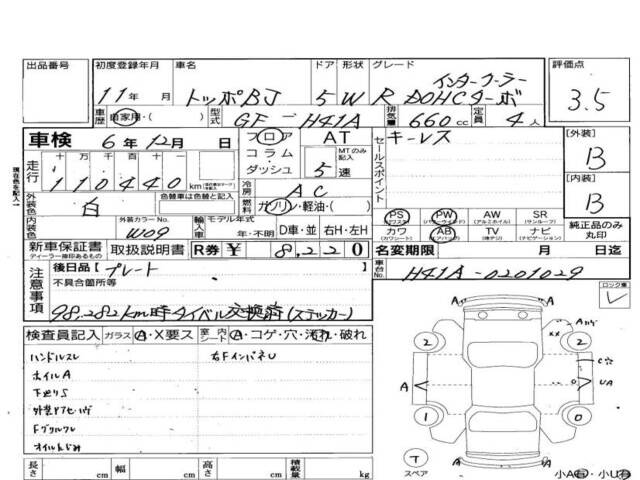 出品番号 初度登録年月 車名 ドア 形状 グレード 評価点
11年 月 トッポBJ 5 W R インタークーラー DOHCターボ 3.5
車歴 自家用・( ) 型式 GF-H41A 排気量 660cc 定員 4人
車検 6年12月 日 フロア・コラム・ダッシュ AT MTのみ記入 5速 セールスポイント キーレス [外装] B
走行 十 万 千 百 十
110440 km 冷房 AC [内装] B
外装色 白 色替車は色替と記入 燃料 ガソリン・軽油・( )
内装色 外装カラーNo. W09 輸入車 モデル年式 年・不明 D車・並 右H・左H
PS (パワステ) PW (パワーウインド) AW (アルミホイル) SR (サンルーフ) 純正品のみ丸印
カワ (カワシート) AB (エアバック) TV (テレビ) ナビ (ナビゲーション)
新車保証書 ディーラー捺印あるもの 取扱説明書 R券 ¥ 8,220 名変期限 月 日迄
注意事項 後日品 [プレート ] 車台No. H41A-0201029
不具合箇所等 ロック車
98,282km時タイベル交換済(ステッカー)
検査員記入 ガラス A・X要ス 室内シート A・コゲ・穴・汚れ・破れ
ハンドルスレ 右FインパネU
ホイルA
下廻りS
Fグリルワレ
2 2 A C U A
1 0
T スペア 小A有・小U有
長さ cm 幅 cm 高さ cm 積載量 kg
現在色を記入